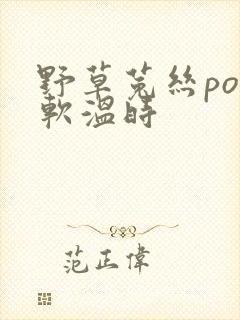 野草菟絲po
軟溫時
范正偉